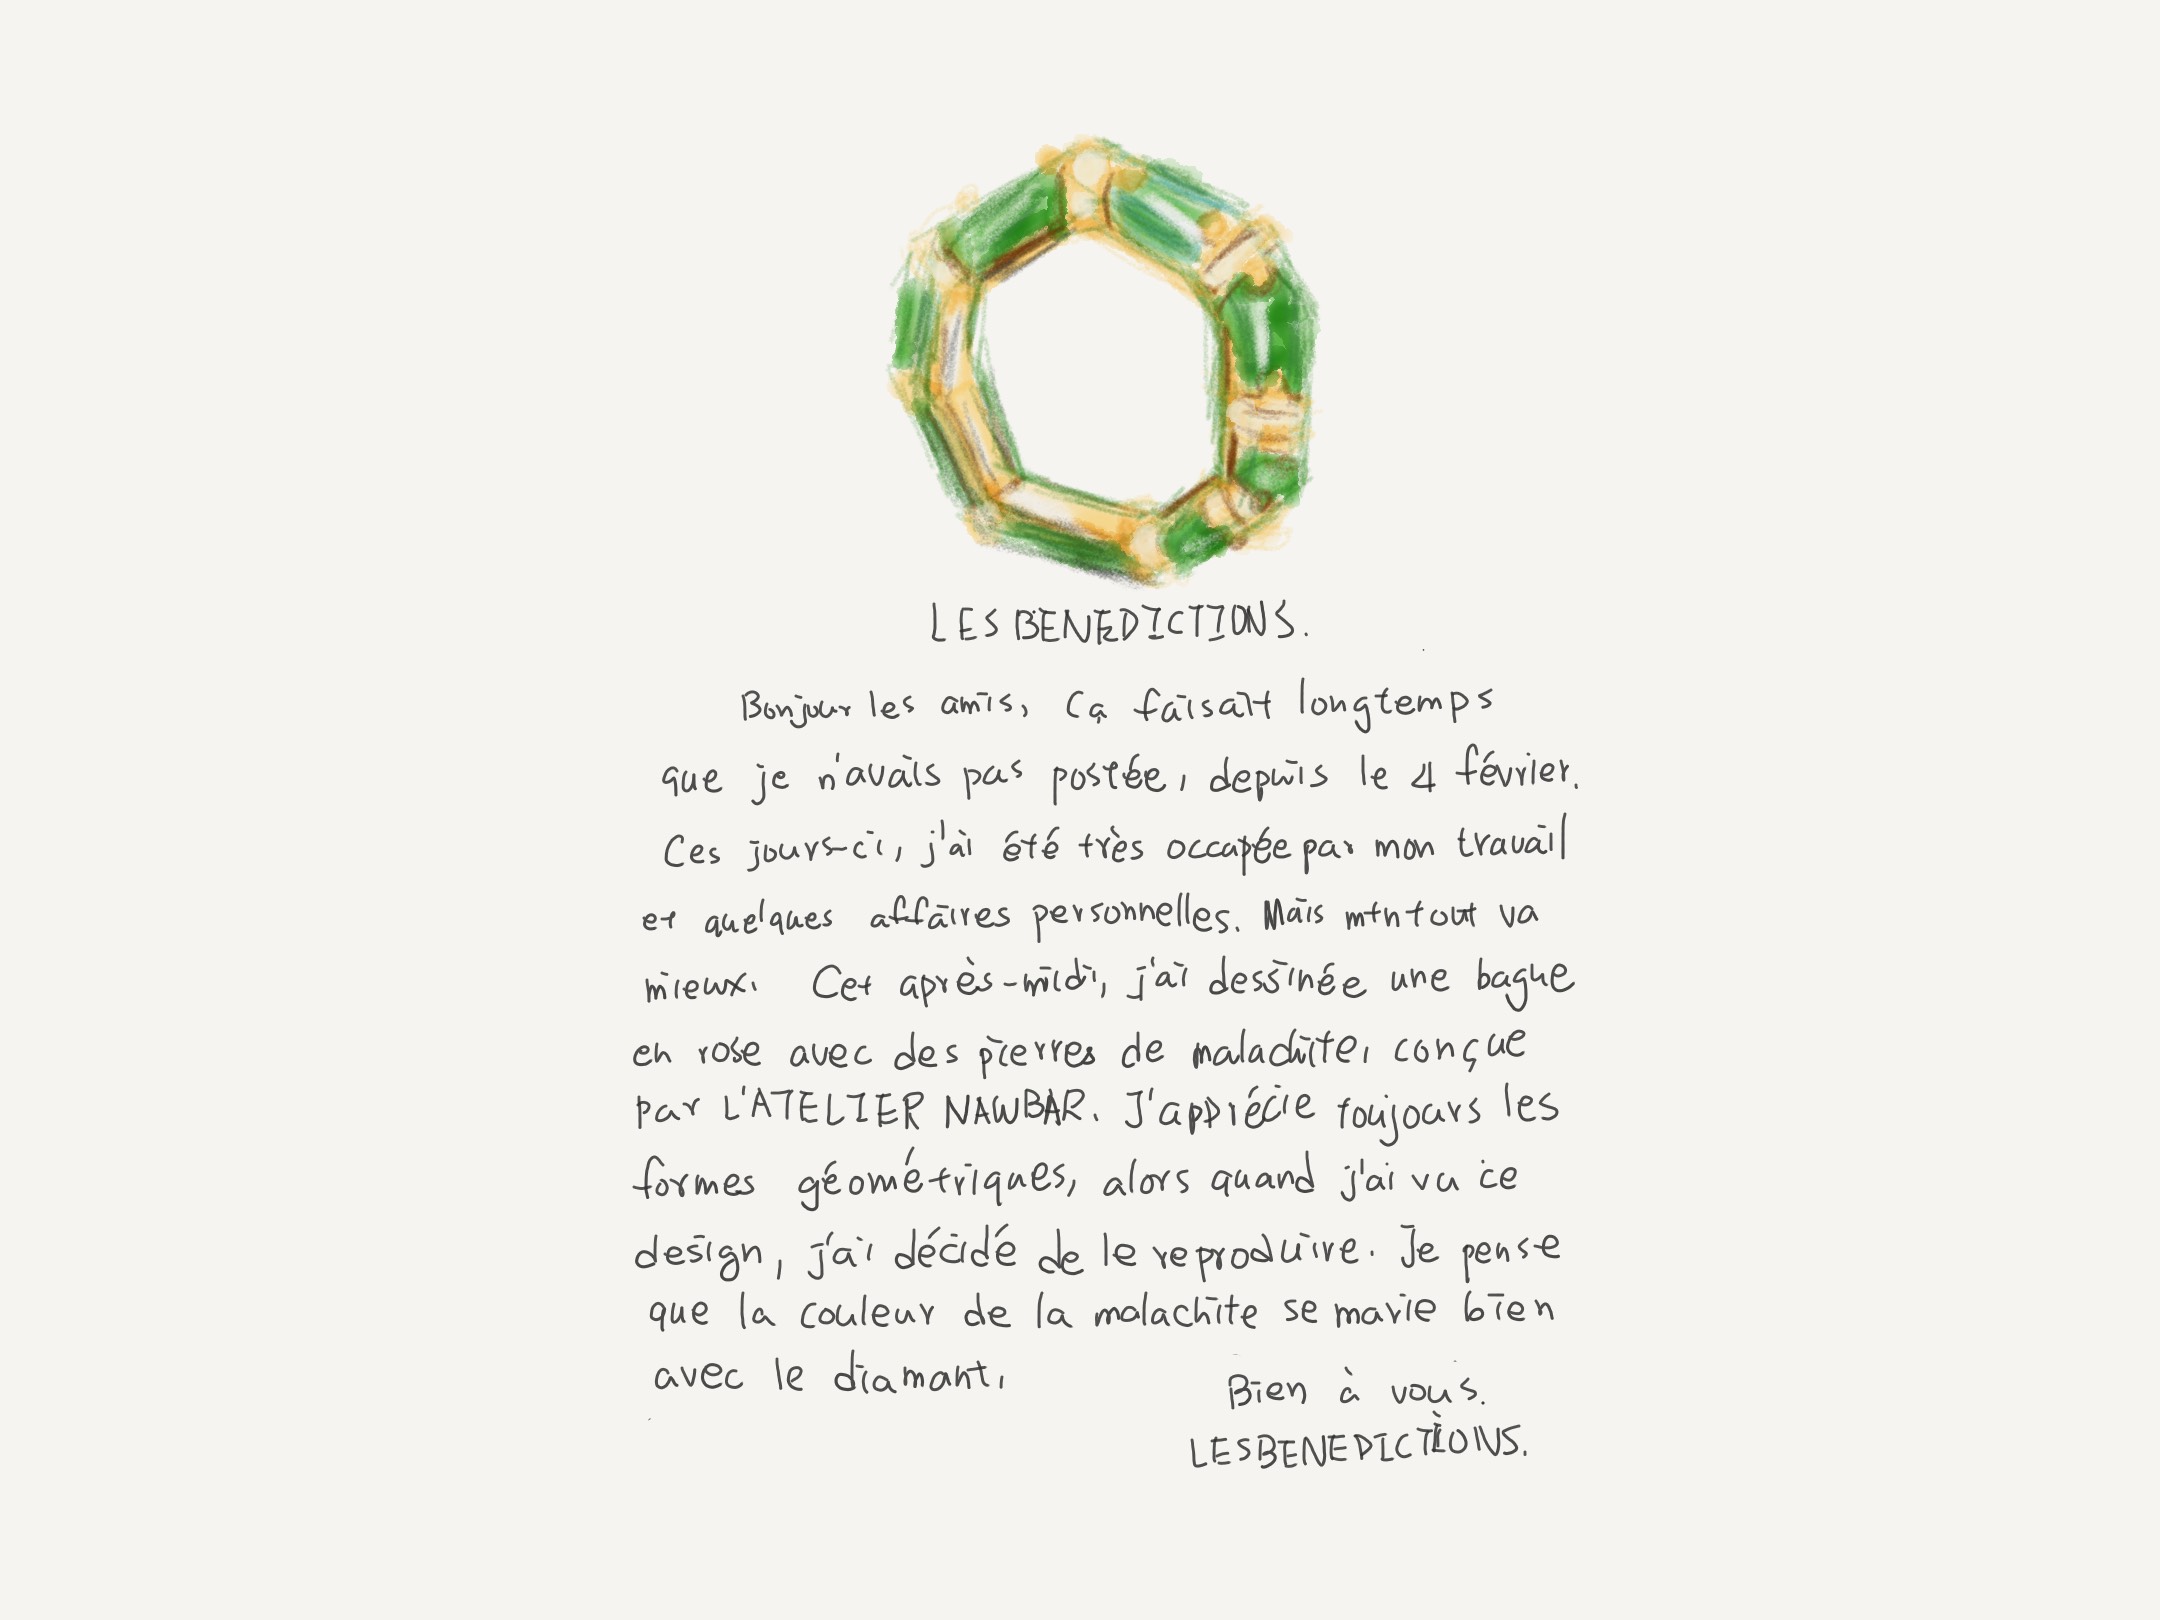 LES BENEDICTIONS.
Bonjour les amis, Ça faisait longtemps
que je n'avais pas postée, depuis le 4 février.
Ces jours-ci, j'ai été très occupée par mon travail
et quelques affaires personnelles. Mais mtn tout va
mieux. Cet après-midi, j'ai dessinée une bague
en rose avec des pierres de malachite, conçue
par L'ATELIER NAWBAR. J'apprécie toujours les
formes géométriques, alors quand j'ai vu ce
design, j'ai décidé de le reproduire. Je pense
que la couleur de la malachite se marie bien
avec le diamant,
Bien à vous.
LESBENEDICTIONS.